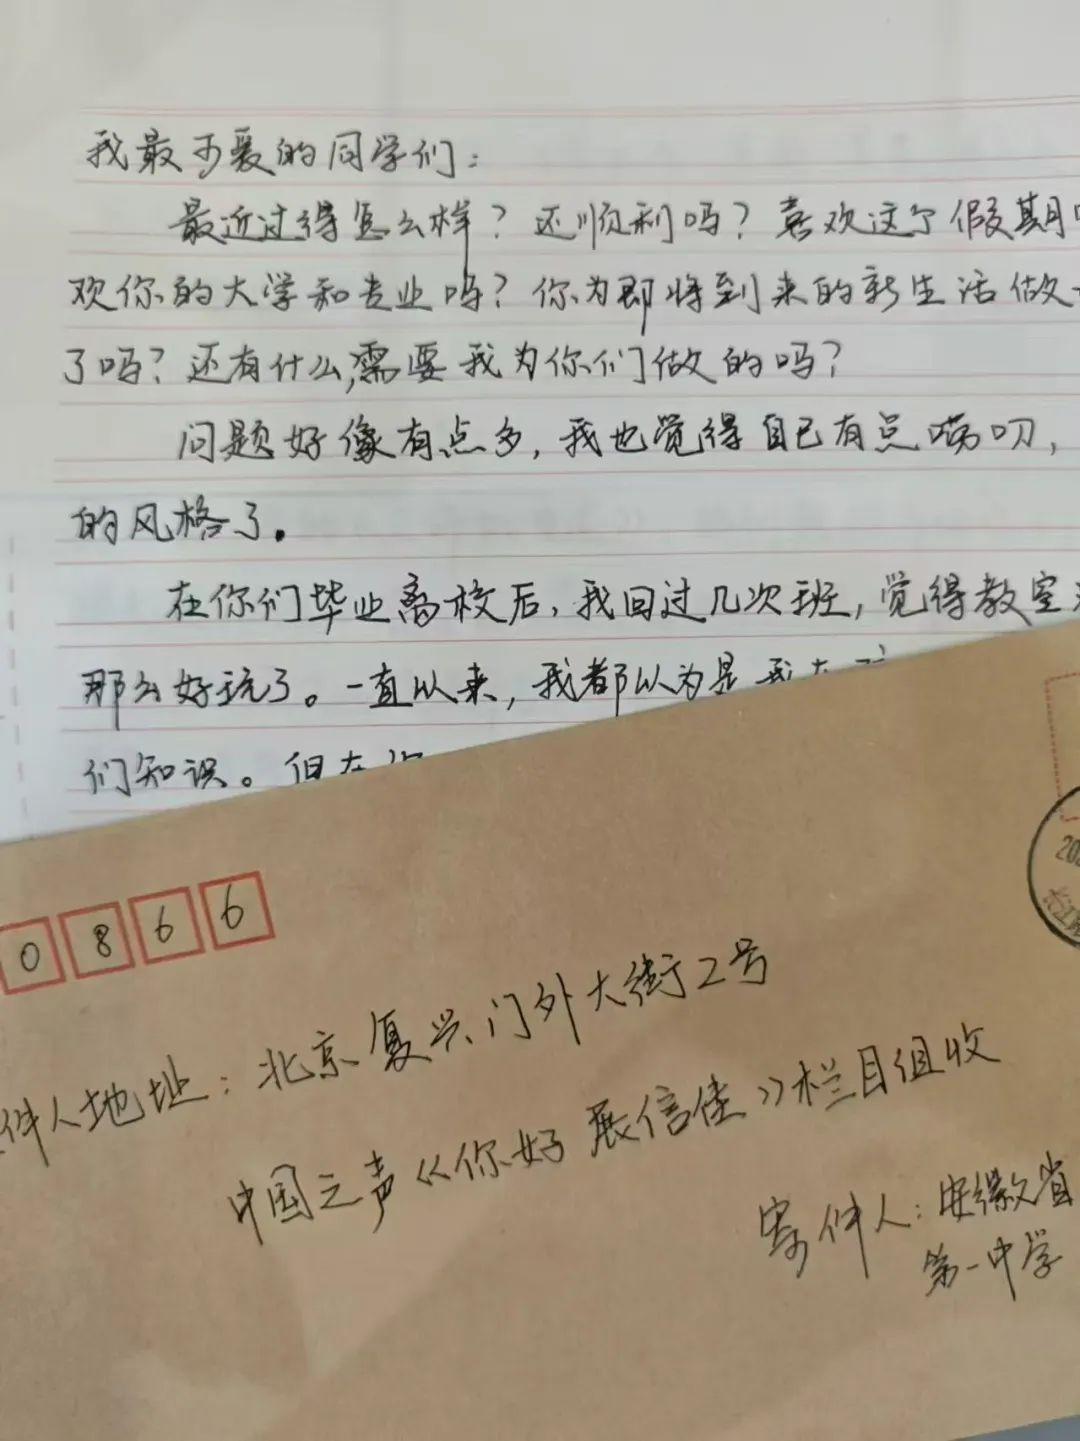 我最可爱的同学们：
最近过得怎么样？还顺利吗？喜欢这个假期
欢你的大学和专业吗？你为即将到来的新生活做
了吗？还有什么需要我为你们做的吗？
问题好像有点多，我也觉得自己有点唠叨，
的风格了。
在你们毕业离校后，我回过几次班，觉得教室
那么好玩了。一直以来，我都以为是我在
们知识。但在
0866
件人地址：北京复兴门外大街2号
中国之声《你好 展信佳》栏目组收
寄件人：安徽省
第一中学